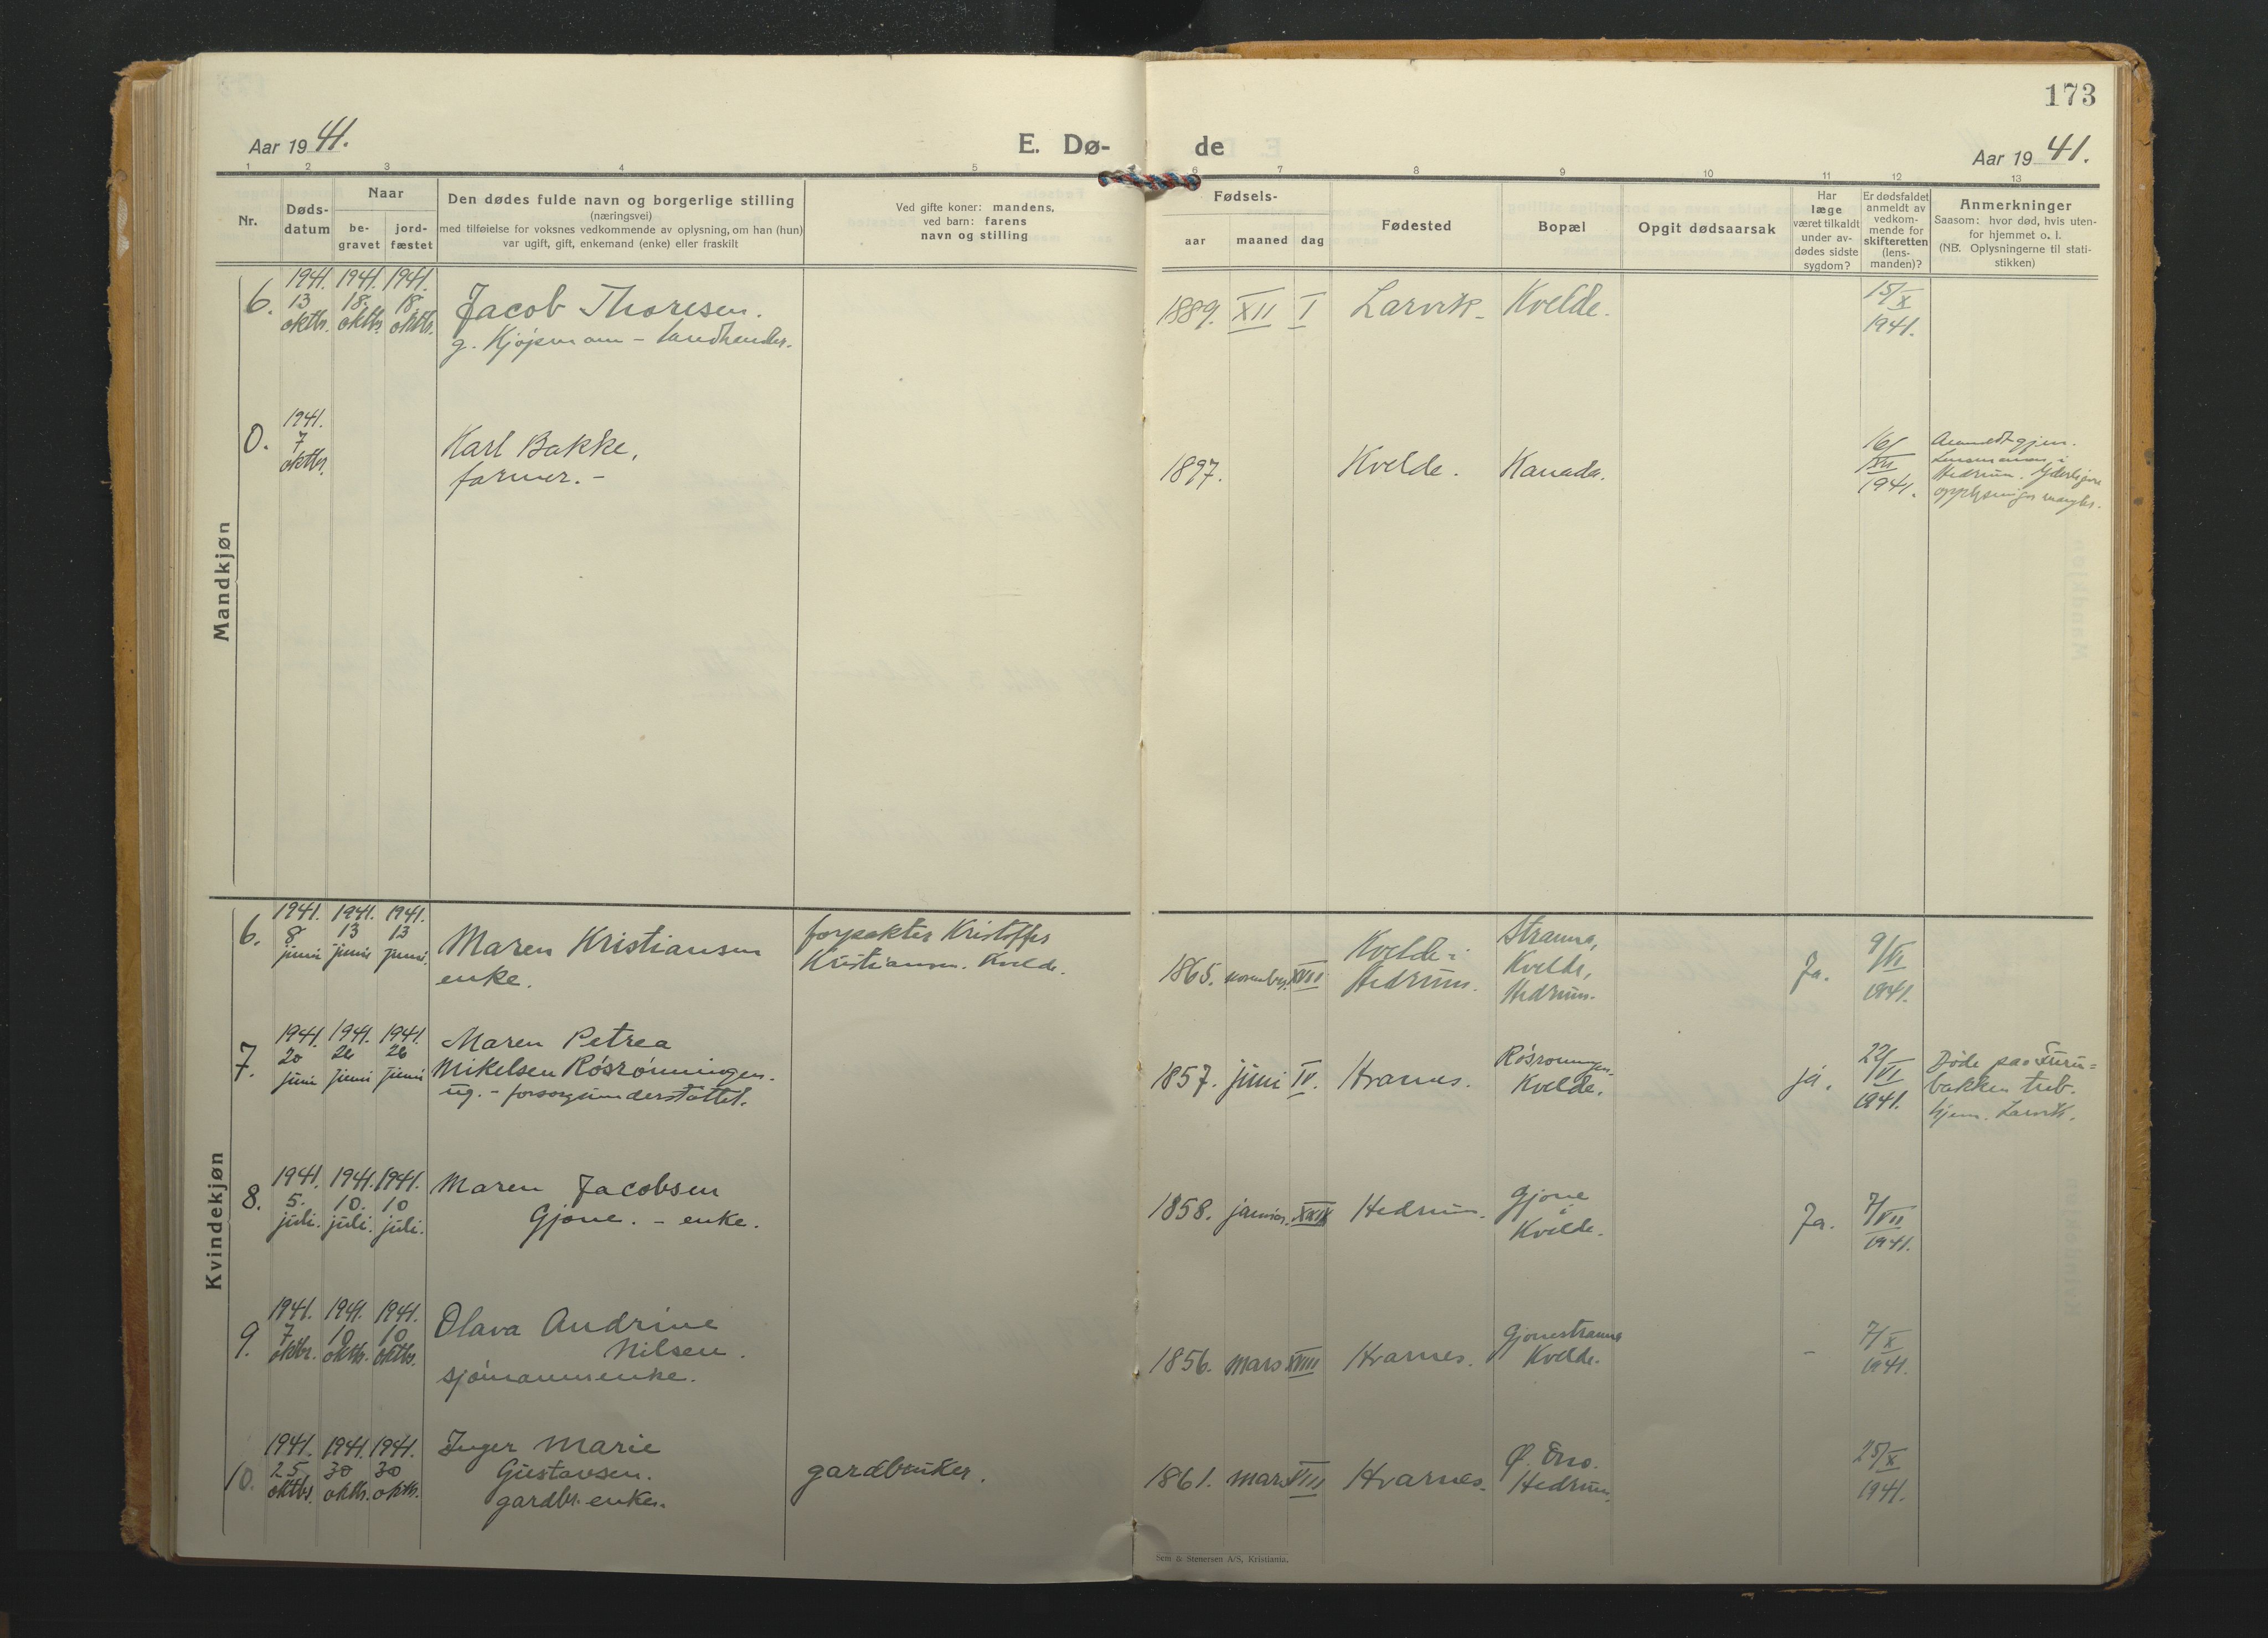 173
Aar 1941.
E. Dø-
de
Aar 1941.
1 2 3 4 5 6 7 8 9 10 11 12 13
Nr.
Døds-
datum
Naar
be-
gravet
jord-
fæstet
Den dødes fulde navn og borgerlige stilling
(næringsvei)
med tilføielse for voksnes vedkommende av oplysning, om han (hun)
var ugift, gift, enkemand (enke) eller fraskilt
Ved gifte koner: mandens,
ved barn: farens
navn og stilling
Fødsels-
aar maaned dag
Fødested
Bopæl
Opgit dødsaarsak
Har
læge
været tilkaldt
under av-
dødes sidste
sygdom?
Er dødsfaldet
anmeldt av
vedkom-
mende for
skifteretten
(lens-
manden)?
Anmerkninger
Saasom: hvor død, hvis uten-
for hjemmet o. l.
(NB. Oplysningerne til stati-
stikken)
Mandkjøn
6.
1941. 1941. 1941.
13 18. 18.
oktbr. oktbr. oktbr.
Jacob Thoresen.
g. Kjøpmann - landhandler.
1889. XII I
Larvik.
Kvelde.
15/X
1941.
0.
1941.
7
oktbr.
Karl Bakke,
farmer. -
1897.
Kvelde.
Kanada.
16/
XII
1941.
Anmeldt gjen.
Lensmannen i
Hedrum. Yderligere
opplysninger mangler.
Kvindekjøn
6.
1941. 1941. 1941.
8 13 13
juni juni juni.
Maren Kristiansen
enke.
forpakter Kristoffer
Kristiansen. Kvelde.
1865. november. XVIII
Kvelde i
Hedrum.
Kvelde,
Hedrum.
Ja.
9/VI
1941.
7.
1941. 1941. 1941.
20 26 26
juni juni juni
Maren Petrea
Mikelsen Rösrönningen.
ug. - forsorgsunderstøttet.
1857. juni IV.
Hvarnes.
Rösronningen.
Kvelde.
ja.
22/
VI
1941.
Døde paa Furu=
bakken tub.
hjem. Larvik.
8.
1941. 1941. 1941.
5. 10. 10
juli. juli. juli.
Maren Jacobsen
Gjone. - enke.
1858. januar. XXIX
Hedrum.
Gjone
i
Kvelde.
Ja.
7/VII
1941.
9.
1941. 1941. 1941.
7 10 10
oktbr. oktbr. oktbr.
Olava Andrine
Nilsen.
sjömannsenke.
1856. mars XVIII
Hvarnes.
Kvelde.
-
7/X
1941.
10.
1941. 1941. 1941.
25 30 30
oktbr. oktbr. oktbr.
Inger Marie
Gustavsen.
gardbr. enke.
gardbruker.
1861. mars VIII
Hvarnes.
Hedrum.
25/X
1941.
Sem & Stenersen A/S, Kristiania.